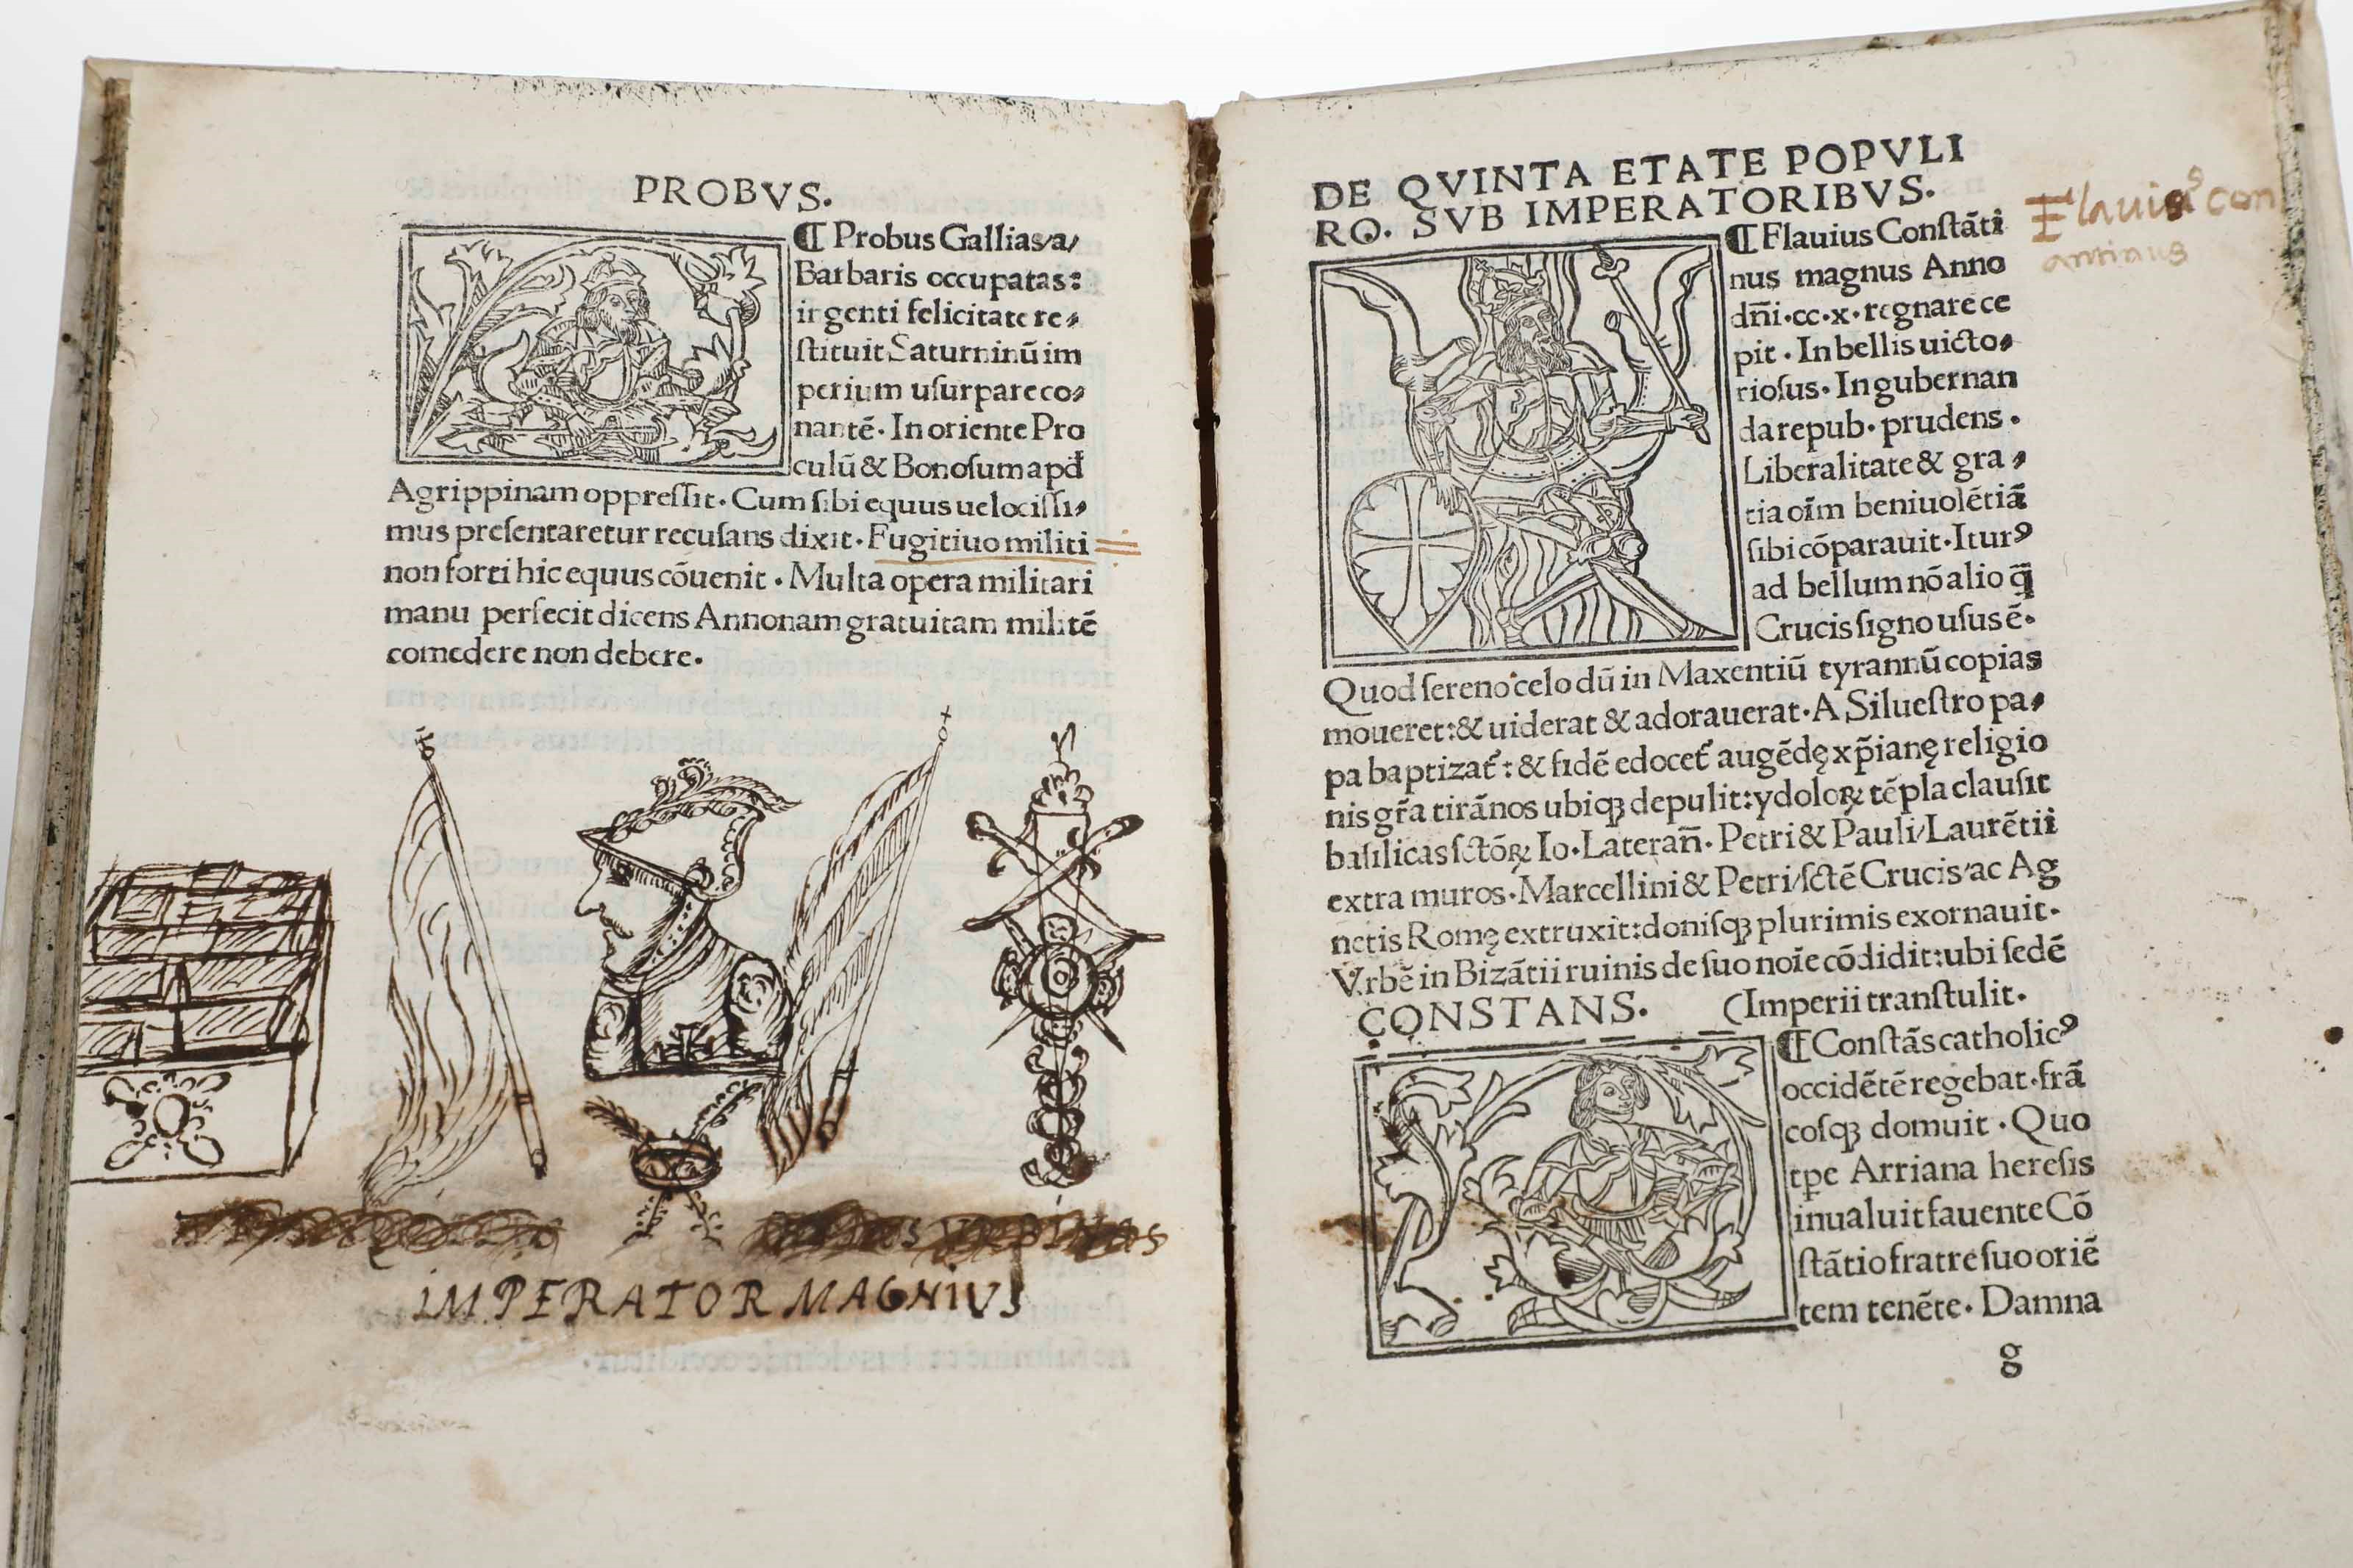 PROBVS.
¶ Probus Gallias/a/
Barbaris occupatas:
ingenti felicitate re⸗
ſtituit Saturninū im
perium uſurpare co⸗
nantē. In oriente Pro
culū & Bonoſum apđ
Agrippinam oppreſſit. Cum ſibi equus uelociſſi⸗
mus preſentaretur recuſans dixit. Fugitiuo militi
non forti hic equus cōuenit. Multa opera militari
manu perfecit dicens Annonam gratuitam militē
comedere non debere.
iMPERATOR MAGNIVS
DE QVINTA ETATE POPVLI
RO. SVB IMPERATORIBVS.
¶ Flauius Conſtāti
nus magnus Anno
dñi.cc.x. regnare ce
pit. In bellis uicto⸗
rioſus. In gubernan
da repub. prudens.
Liberalitate & gra⸗
tia oīm beniuolētiā
ſibi cōparauit. Iturꝰ
ad bellum nō alio q̄
Crucis ſigno uſus ē.
Quod ſereno celo dū in Maxentiū tyrannū copias
moueret: & uiderat & adorauerat. A Silueſtro pa⸗
pa baptizat᷑: & fidē edocet᷑ augēdę xp̄ianę religio
nis gr̄a tirānos ubiqꝫ depulit: ydoloꝝ tēpla clauſit
baſilicas ſctōꝝ Io. Laterañ. Petri & Pauli/Laurētii
extra muros. Marcellini & Petri/ſctē Crucis/ac Ag
netis Romę extruxit: doniſqꝫ plurimis exornauit.
Vrbē in Bizātii ruinis de ſuo noīe cōdidit: ubi ſedē
(Imperii tranſtulit.
CONSTANS.
¶ Conſtās catholicꝰ
occidētē regebat. frā
coſqꝫ domuit. Quo
tꝑe Arriana hereſis
inualuit fauente Cō
ſtātio fratre ſuo oriē
tem tenēte. Damna
g
Flauiꝰ con
antinus